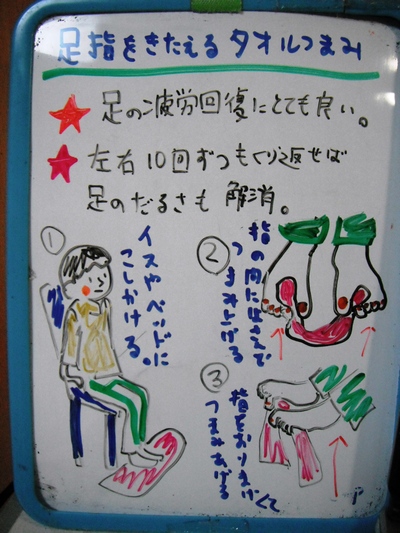 足指をきたえるタオルつまみ
足の疲労回復にとても良い。
左右10回ずつもくり返せば
足のだるさも解消。
①
イスやベッドに
こしかける。
②
指の間にはさんで
つまみ上げる
③
指をおりまげて
つまみあげる